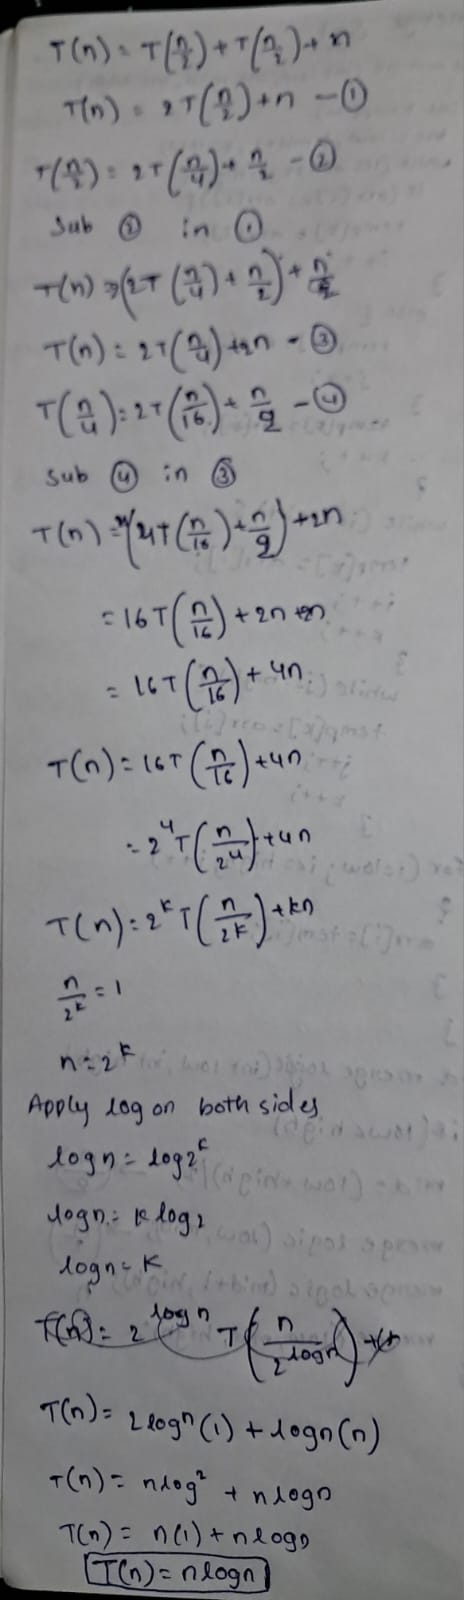 T(n) = T(n/2) + T(n/2) + n
T(n) = 2T(n/2) + n - ①
T(n/2) = 2T(n/4) + n/2 - ②
Sub ② in ①
T(n) = (2T(n/4) + n/2) + n/2
T(n) = 2T(n/4) + 2n - ③
T(n/4) = 2T(n/16) + n/2 - ④
Sub ④ in ③
T(n) = 4(4T(n/16) + n/2) + 2n
= 16T(n/16) + 2n + 2n
= 16T(n/16) + 4n
T(n) = 16T(n/16) + 4n
= 2^4 T(n/2^4) + 4n
T(n) = 2^k T(n/2^k) + kn
n/2^k = 1
n = 2^k
Apply log on both sides
log n = log 2^k
log n = k log 2
log n = k
T(n) = 2^log n T(n/2^log n) +
T(n) = 2 log n (1) + log n (n)
T(n) = n log 2 + n log n
T(n) = n(1) + n log n
T(n) = n log n